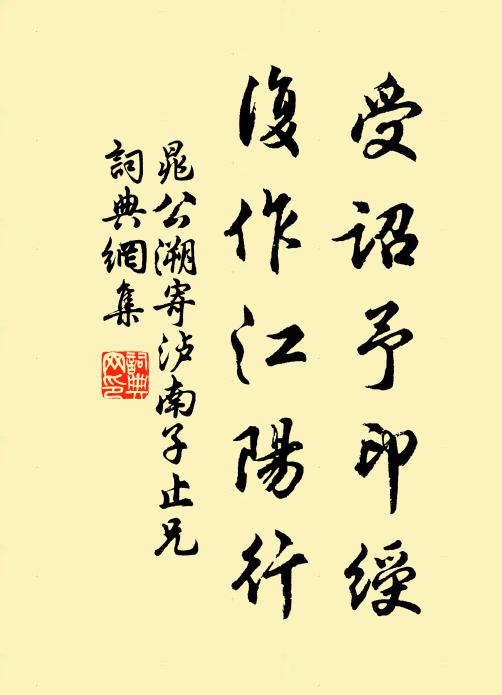 受詔予印綬
復作江陽行
晁公溯寄泸南子止兄
詞典網集
詞典
网印